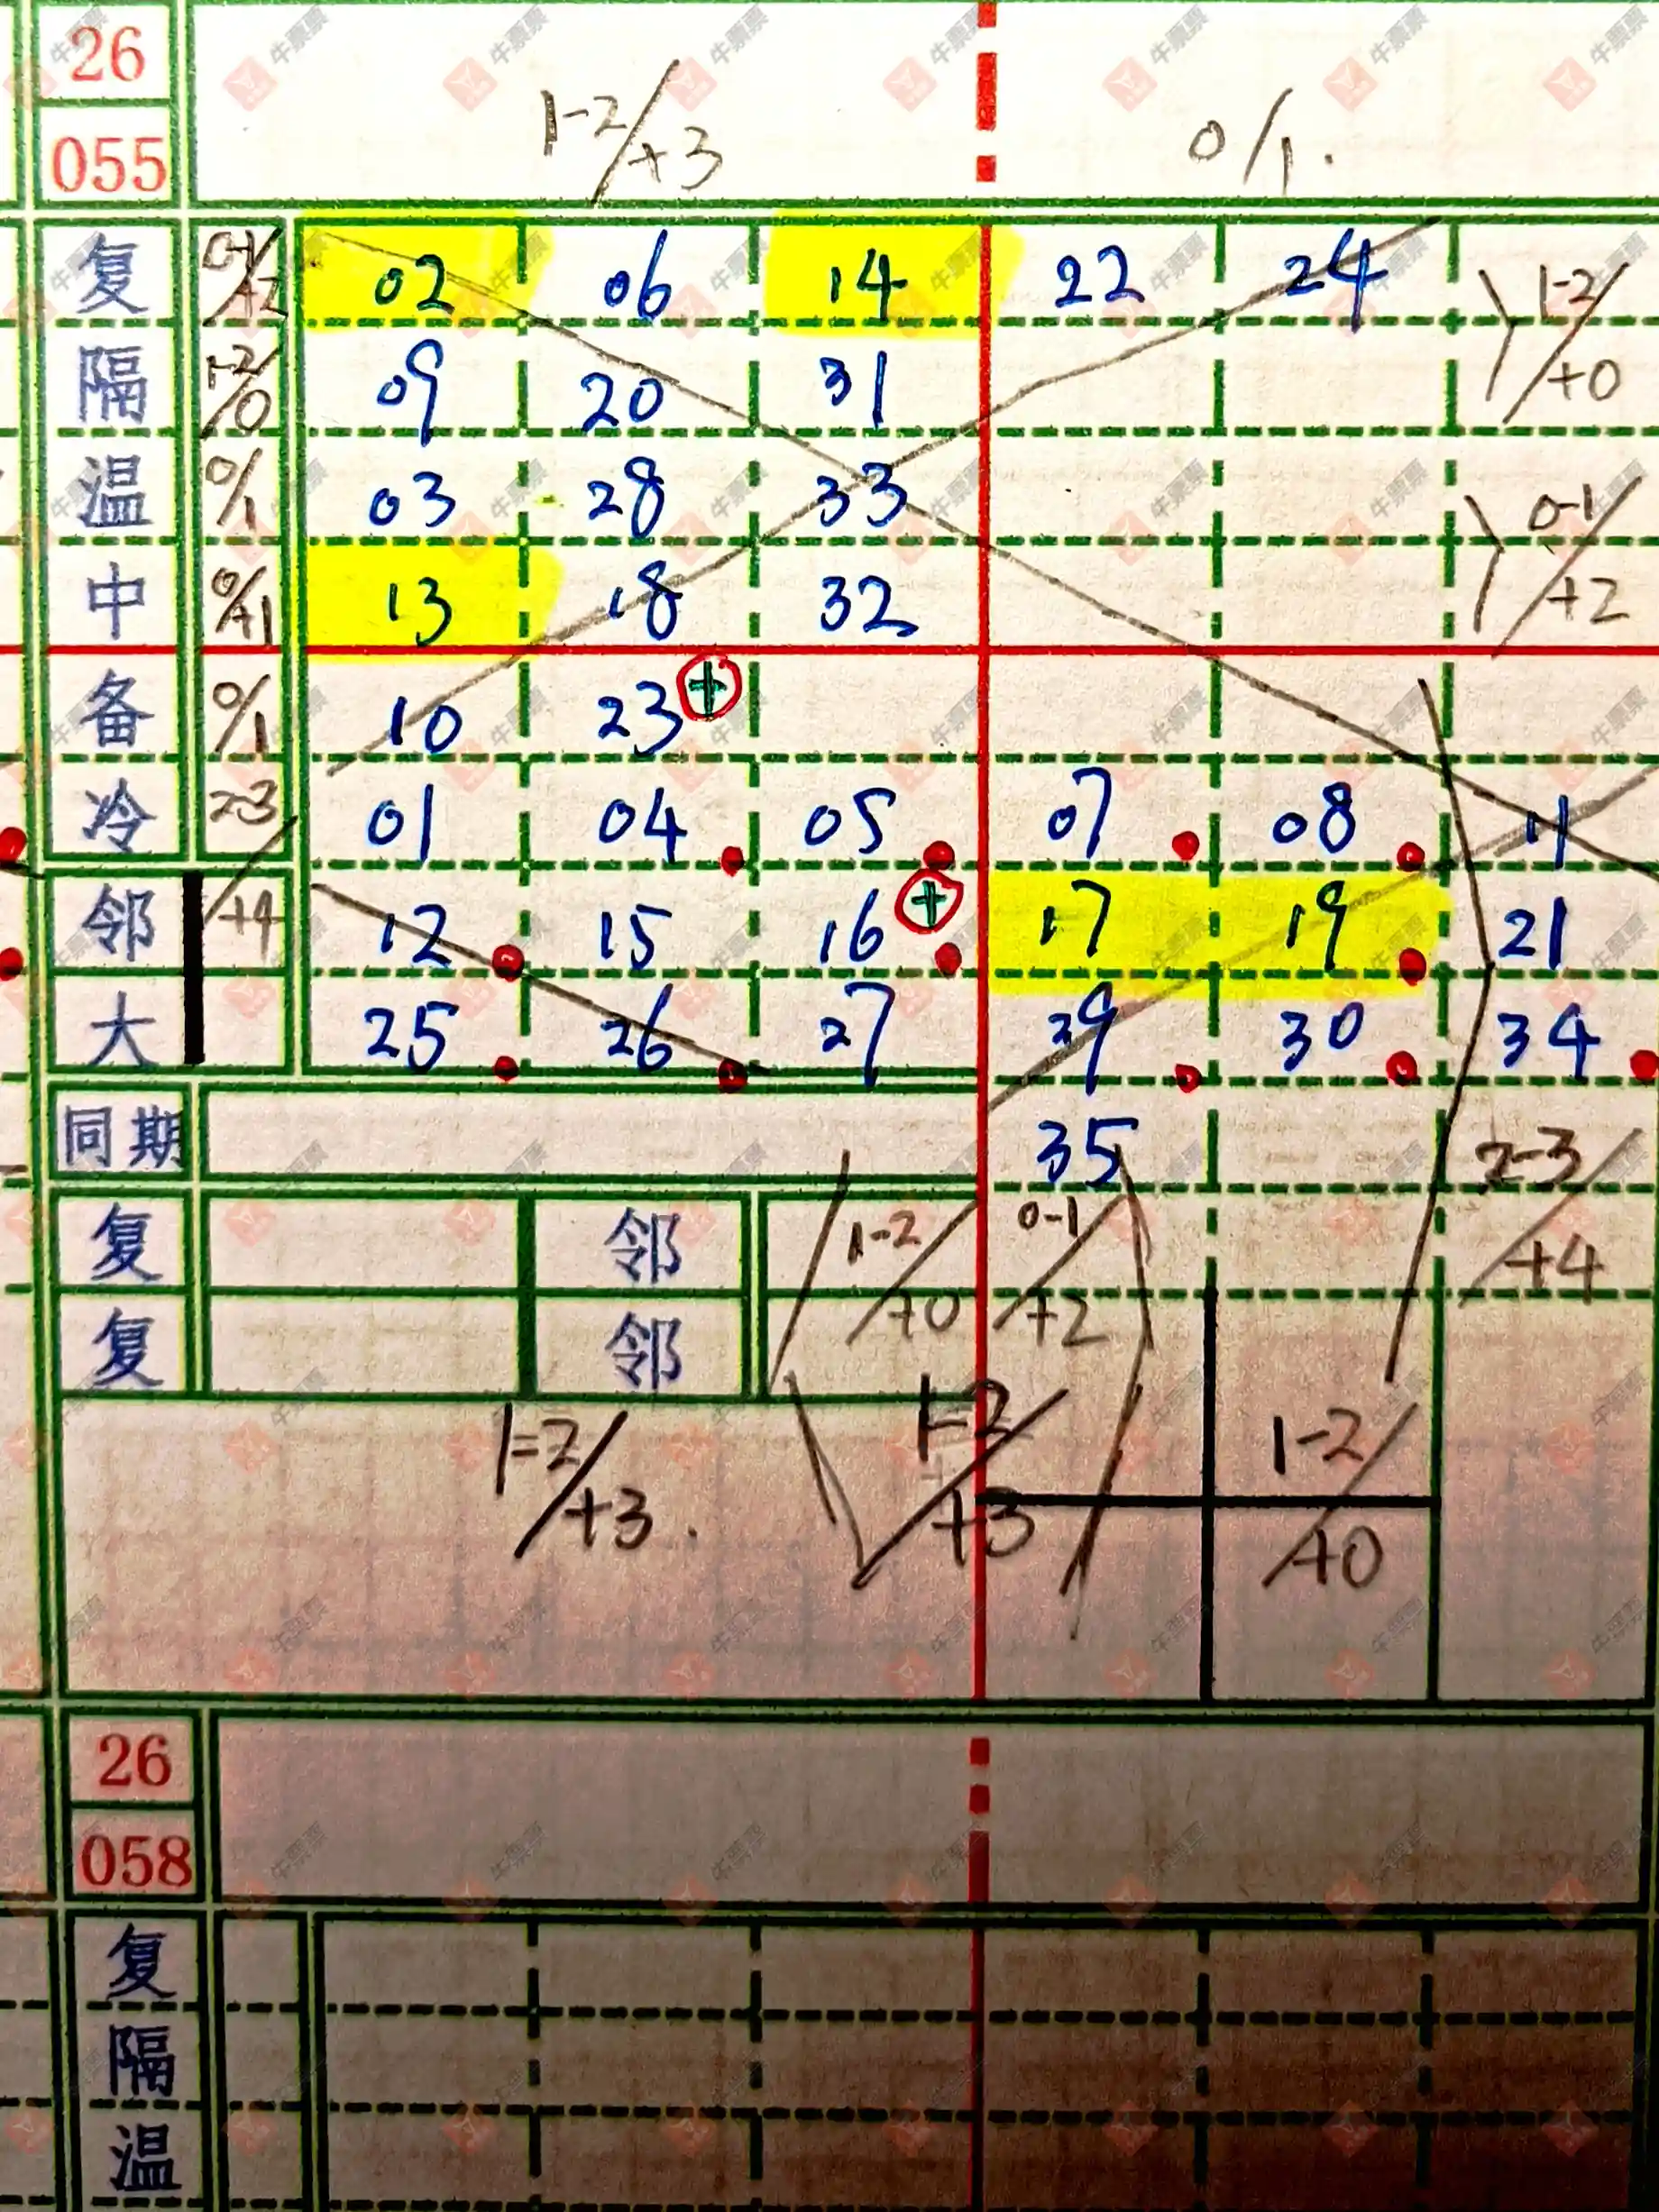 26
055 1-2/+3 0/1.
复 0-1/+2 02 06 14 22 24 1-2/+0
隔 1-2/0 09 20 31
温 0/1 03 28 33 0-1/+2
中 0/+1 13 18 32
备 0/1 10 23 +
冷 2-3/+4 01 04 05 07 08 11
邻 12 15 16 + 17 19 21
大 25 26 27 29 30 34
同期 35 2-3/+4
复 邻 1-2/+0 0-1/+2
复 邻
1-2/+3. 1-2/+3 1-2/+0
26
058
复
隔
温
牛票票